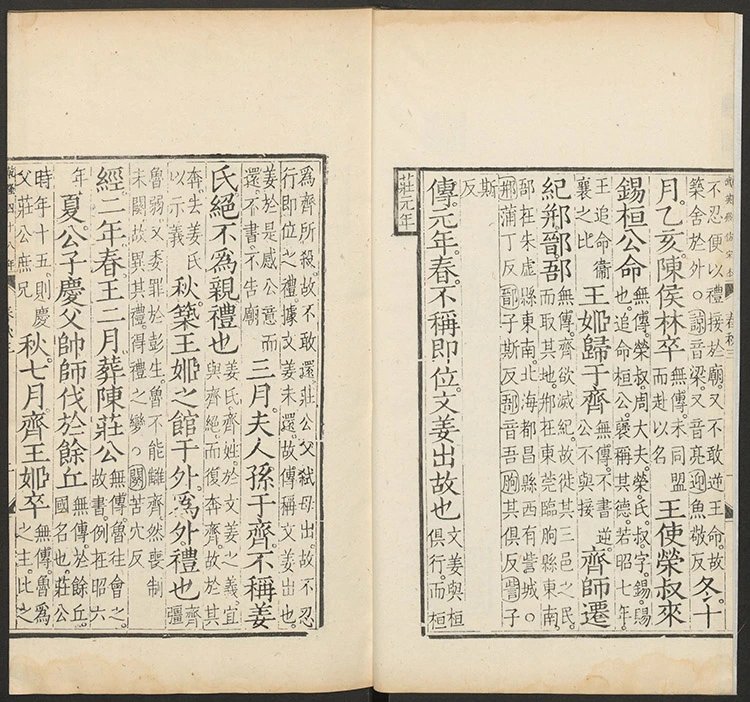 不忍便以禮接於廟。又不敢逆王命。故築舍於外。○諒音梁。又音亮。迎魚敬反冬。十
月。乙亥。陳侯林卒。無傳。未同盟而赴以名王使榮叔來
錫桓公命。無傳。榮叔周大夫。榮氏。叔字。錫。賜也。追命桓公。襃稱其德。若昭七年。
王追命衞襄之比王姬歸于齊。無傳。不書逆。公不與接齊師遷
紀郱鄑郚。無傳。齊欲滅紀。故徙其三邑之民。而取其地。郱在東莞臨朐縣東南。
郚在朱虛縣東南。北海都昌縣西有訾城。○郱蒲丁反鄑子斯反郚音吾朐其俱反訾子
斯反
傳。元年。春。不稱即位。文姜出故也。文姜與桓俱行。而桓
莊元年
爲齊所殺。故不敢還。莊公父弒母出。故不忍行即位之禮。據文姜未還。故傳稱文姜出也。
姜於是感公意而還。不書。不告廟三月。夫人孫于齊。不稱姜
氏。絕不爲親。禮也。姜氏齊姓。於文姜之義。宜與齊絕。而復奔齊。故於其
奔。去姜氏以示義秋。築王姬之館于外。爲外。禮也。齊彊
魯弱。又委罪於彭生。魯不能讎齊。然喪制未闋。故異其禮。得禮之變。○闋苦穴反
經二年。春。王二月。葬陳莊公。無傳。魯往會之。故書。例在昭六
年夏。公子慶父帥師伐於餘丘。無傳。於餘丘。國名也。莊公
時年十五。則慶父莊公庶兄秋。七月。齊王姬卒。無傳。魯爲之主。比之
乾隆四十八年